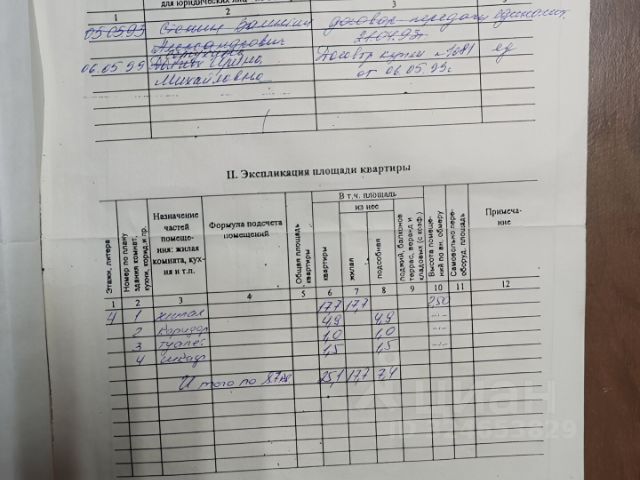 для юридических лиц
1 2 3
05.05.93 Станин Валентин договор передачи
Александрович 21.04.93г.
06.05.99 Ирина Договор купли №1081 ед
Михайловна от 06.05.99г.
II. Экспликация площади квартиры
Этажи, литера
Номер по плану здания комнат, кухни, корид. и пр.
Назначение частей помещения: жилая комната, кухня и т.п.
Формула подсчета помещений
Общая площадь квартиры
В т.ч. площадь
квартиры
из нее
жилая
подсобная
лоджий, балконов террас, веранд и кладовых (с коэф.)
Высота помещений по вн. обмеру
Самовольно пере-оборуд. площадь
Примеча-ние
1 2 3 4 5 6 7 8 9 10 11 12
4 1 жилая 17,7 17,7 250
2 коридор 4,9 4,9 -"-
3 туалет 1,0 1,0 -"-
4 шкаф 1,5 1,5 -"-
Итого по 87кв 25,1 17,7 7,4
циан